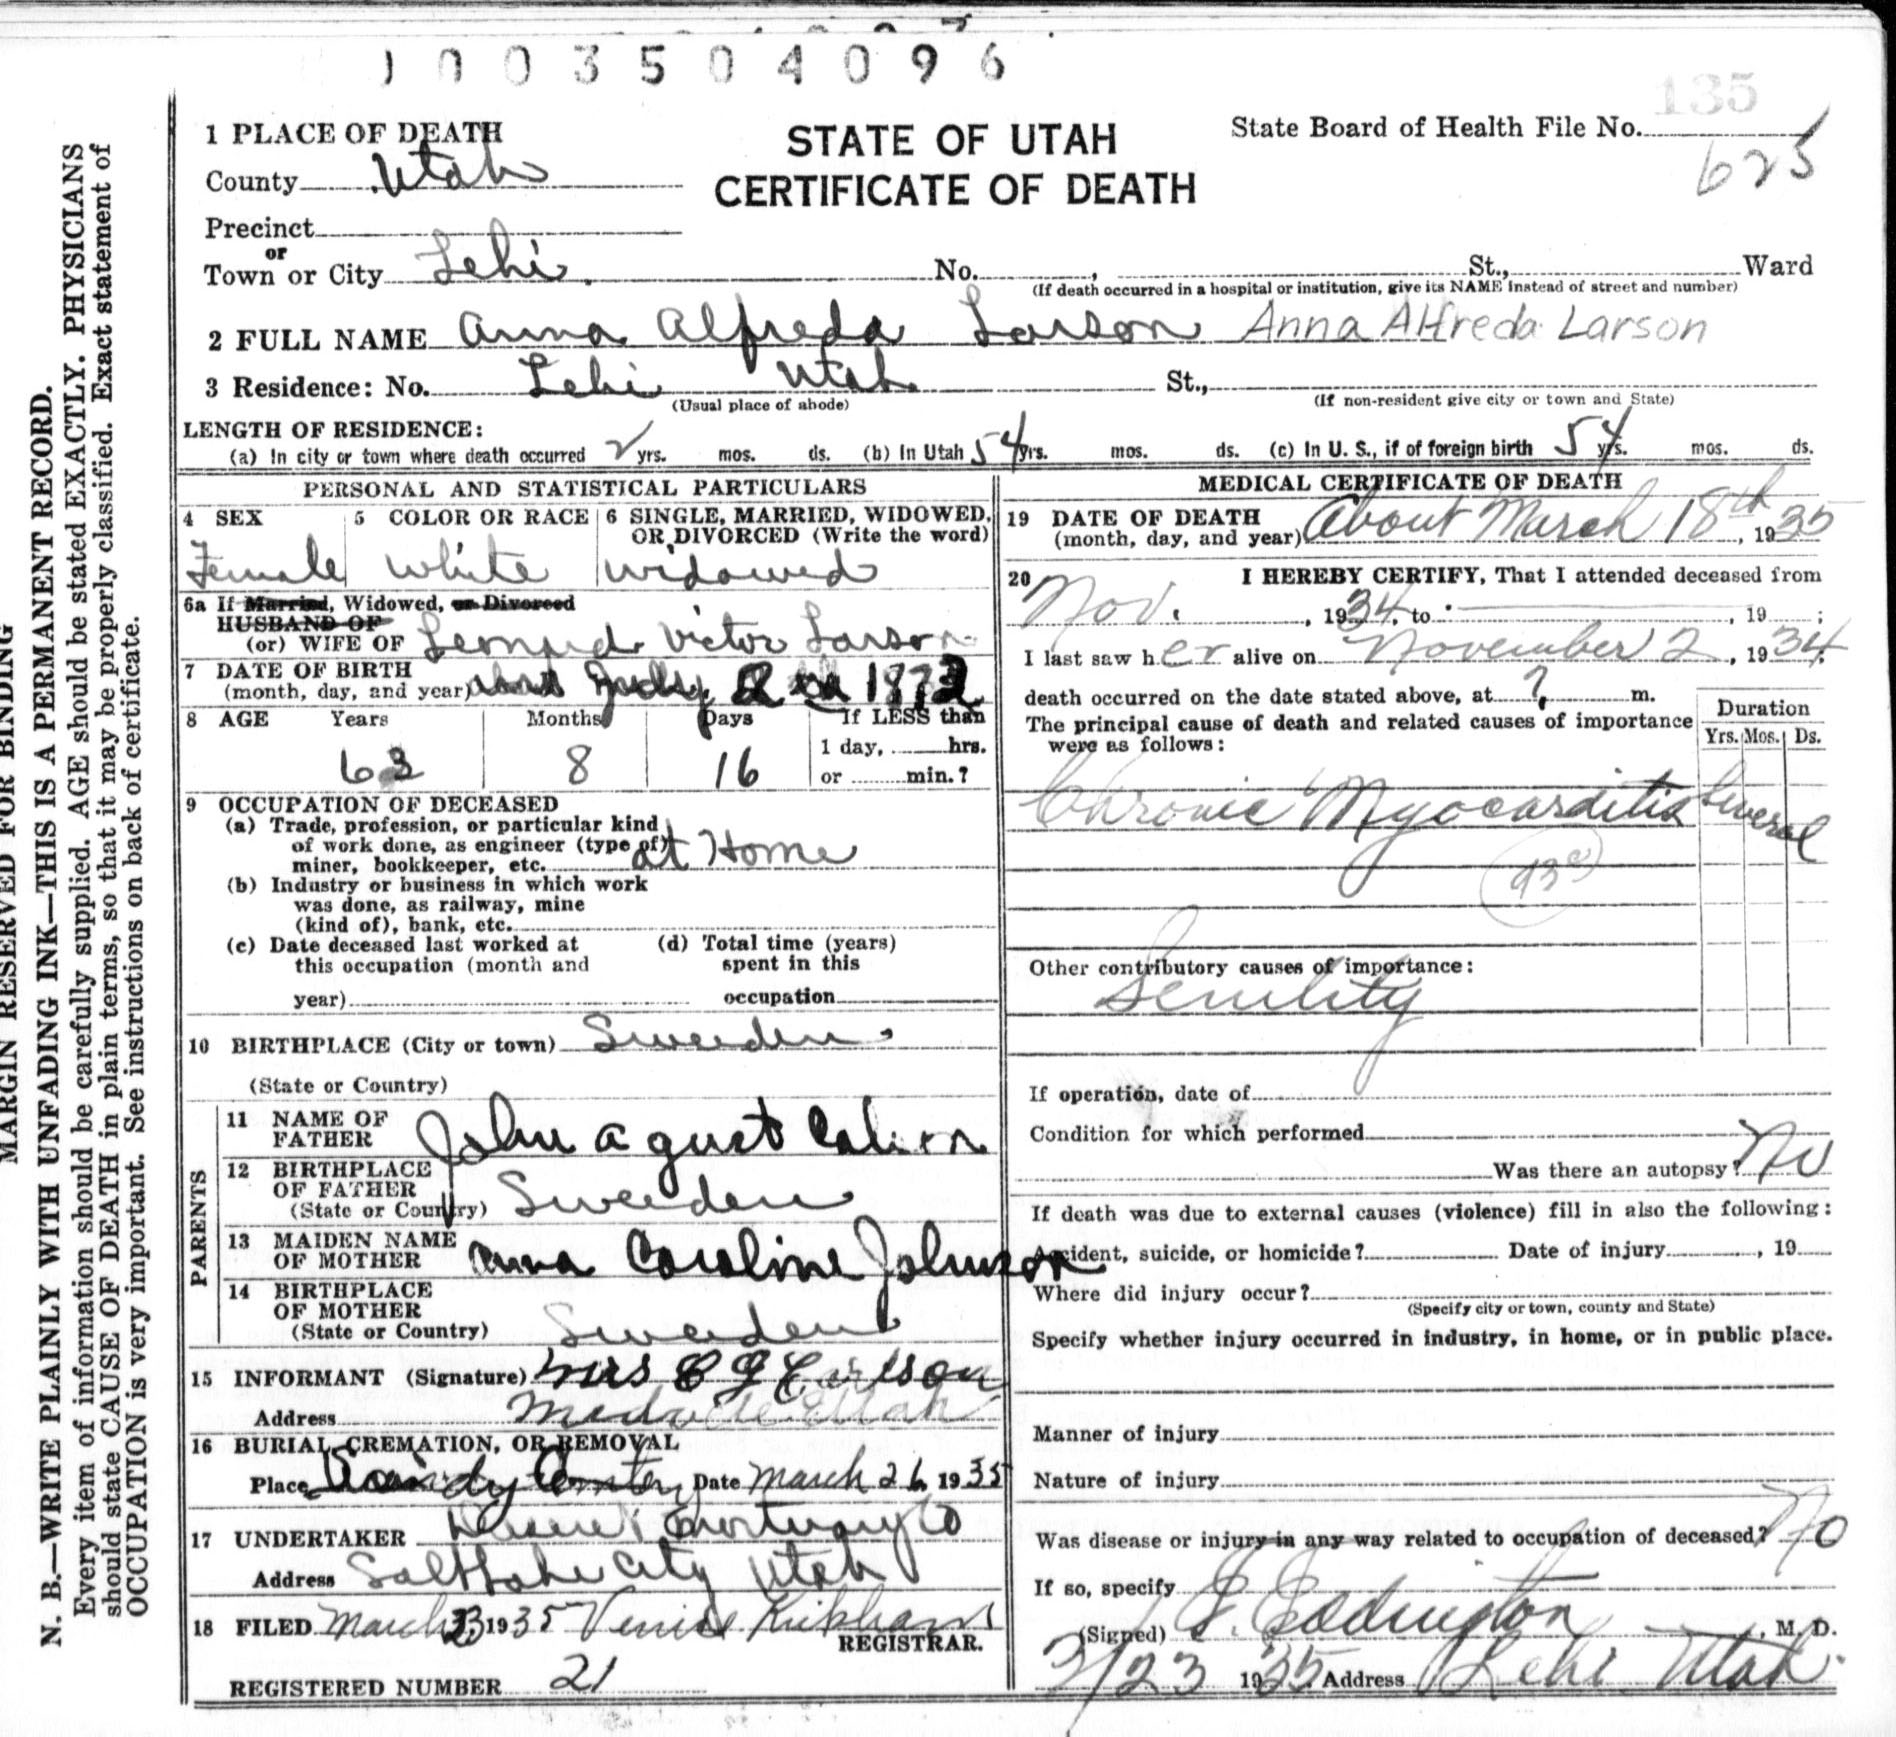 1003504096
135
1 PLACE OF DEATH
STATE OF UTAH
CERTIFICATE OF DEATH
State Board of Health File No.
625
County Utah
Precinct
or
Town or City Lehi. No. , St., Ward
(If death occurred in a hospital or institution, give its NAME instead of street and number)
2 FULL NAME Anna Alfreda Larson Anna Alfreda Larson
3 Residence: No. Lehi Utah St.,
(Usual place of abode) (If non-resident give city or town and State)
LENGTH OF RESIDENCE:
(a) In city or town where death occurred 2 yrs. mos. ds. (b) In Utah 54 yrs. mos. ds. (c) In U. S., if of foreign birth 54 yrs. mos. ds.
PERSONAL AND STATISTICAL PARTICULARS
4 SEX 5 COLOR OR RACE 6 SINGLE, MARRIED, WIDOWED, OR DIVORCED (Write the word)
Female White Widowed
6a If Married, Widowed, or Divorced
HUSBAND OF
(or) WIFE OF Leonard Victor Larson
7 DATE OF BIRTH
(month, day, and year) July 2
8 AGE Years Months Days If LESS than
1 day, hrs.
63 8 16 or min.?
9 OCCUPATION OF DECEASED
(a) Trade, profession, or particular kind
of work done, as engineer (type of)
miner, bookkeeper, etc. at Home
(b) Industry or business in which work
was done, as railway, mine
(kind of), bank, etc.
(c) Date deceased last worked at
this occupation (month and
year)
(d) Total time (years)
spent in this
occupation
10 BIRTHPLACE (City or town) Sweeden
(State or Country)
PARENTS
11 NAME OF
FATHER John August
12 BIRTHPLACE
OF FATHER
(State or Country) Sweeden
13 MAIDEN NAME
OF MOTHER Anna Caroline Johnson
14 BIRTHPLACE
OF MOTHER
(State or Country) Sweeden
15 INFORMANT (Signature) Mrs C J Carlson
Address Midvale Utah
16 BURIAL, CREMATION, OR REMOVAL
Place Sandy Date March 26, 1935
17 UNDERTAKER Deseret Mortuary Co
Address Salt Lake City Utah
18 FILED March 23 1935 Venice Kirkham
REGISTRAR.
REGISTERED NUMBER 21
MEDICAL CERTIFICATE OF DEATH
19 DATE OF DEATH
(month, day, and year) About March 18th, 1935
20 I HEREBY CERTIFY, That I attended deceased from
Nov. , 1934, to , 19 ;
I last saw her alive on November 2, 1934,
death occurred on the date stated above, at ? m.
The principal cause of death and related causes of importance
were as follows:
Duration
Yrs. Mos. Ds.
Chronic Myocarditis Several
Other contributory causes of importance:
Senility
If operation, date of
Condition for which performed
Was there an autopsy? No
If death was due to external causes (violence) fill in also the following:
Accident, suicide, or homicide? Date of injury , 19
Where did injury occur?
(Specify city or town, county and State)
Specify whether injury occurred in industry, in home, or in public place.
Manner of injury
Nature of injury
Was disease or injury in any way related to occupation of deceased? No
If so, specify
(Signed) Eddington, M. D.
3/23 1935 Address Lehi Utah.
MARGIN RESERVED FOR BINDING
N. B.—WRITE PLAINLY WITH UNFADING INK—THIS IS A PERMANENT RECORD.
Every item of information should be carefully supplied. AGE should be stated EXACTLY. PHYSICIANS
should state CAUSE OF DEATH in plain terms, so that it may be properly classified. Exact statement of
OCCUPATION is very important. See instructions on back of certificate.